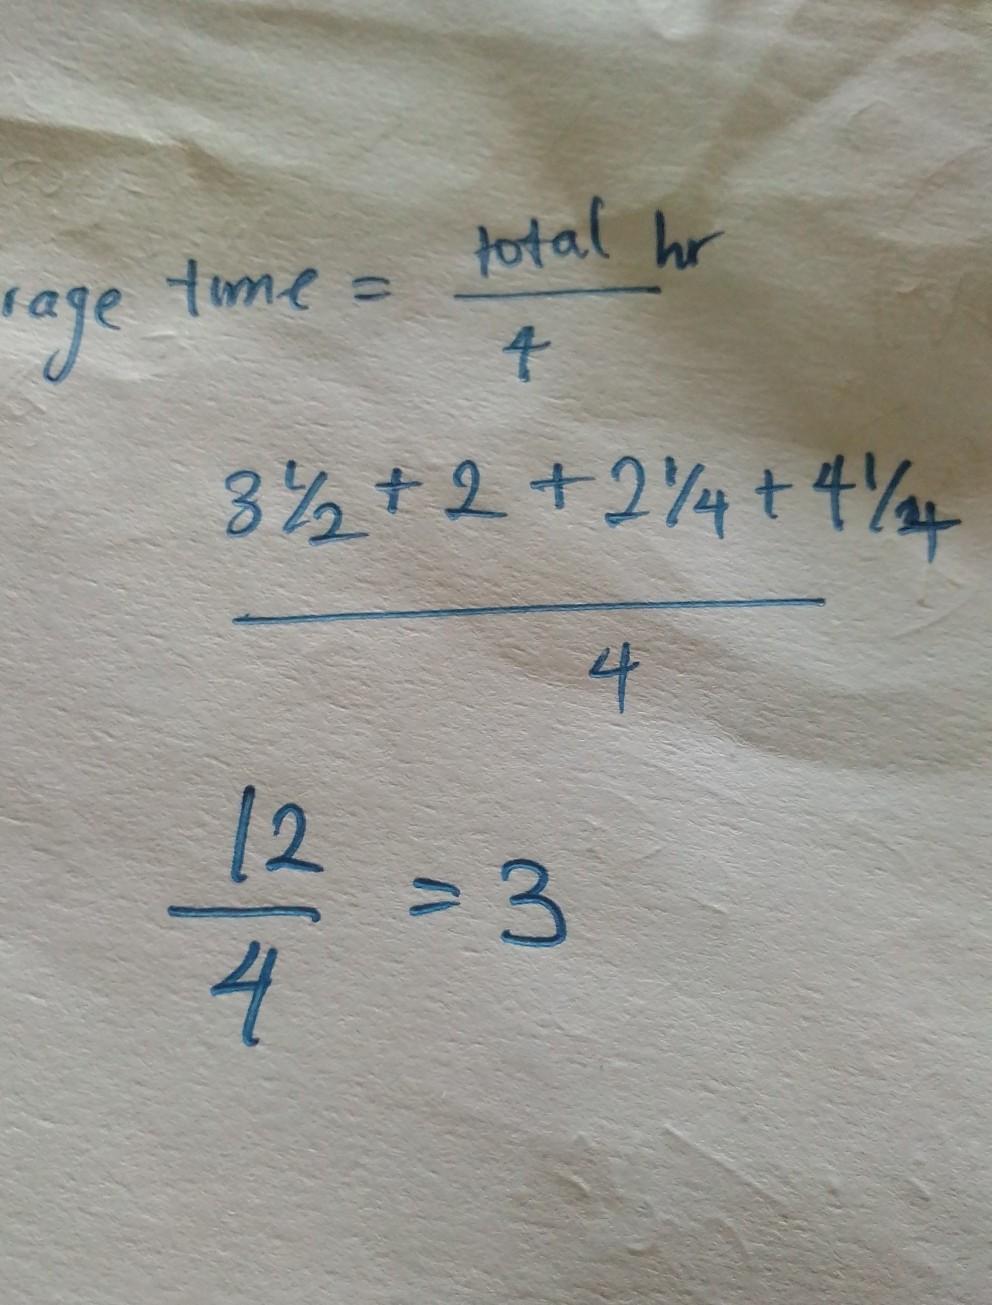 rage time = total hr / 4
3 1/2 + 2 + 2 1/4 + 4 1/4
4
12 / 4 = 3